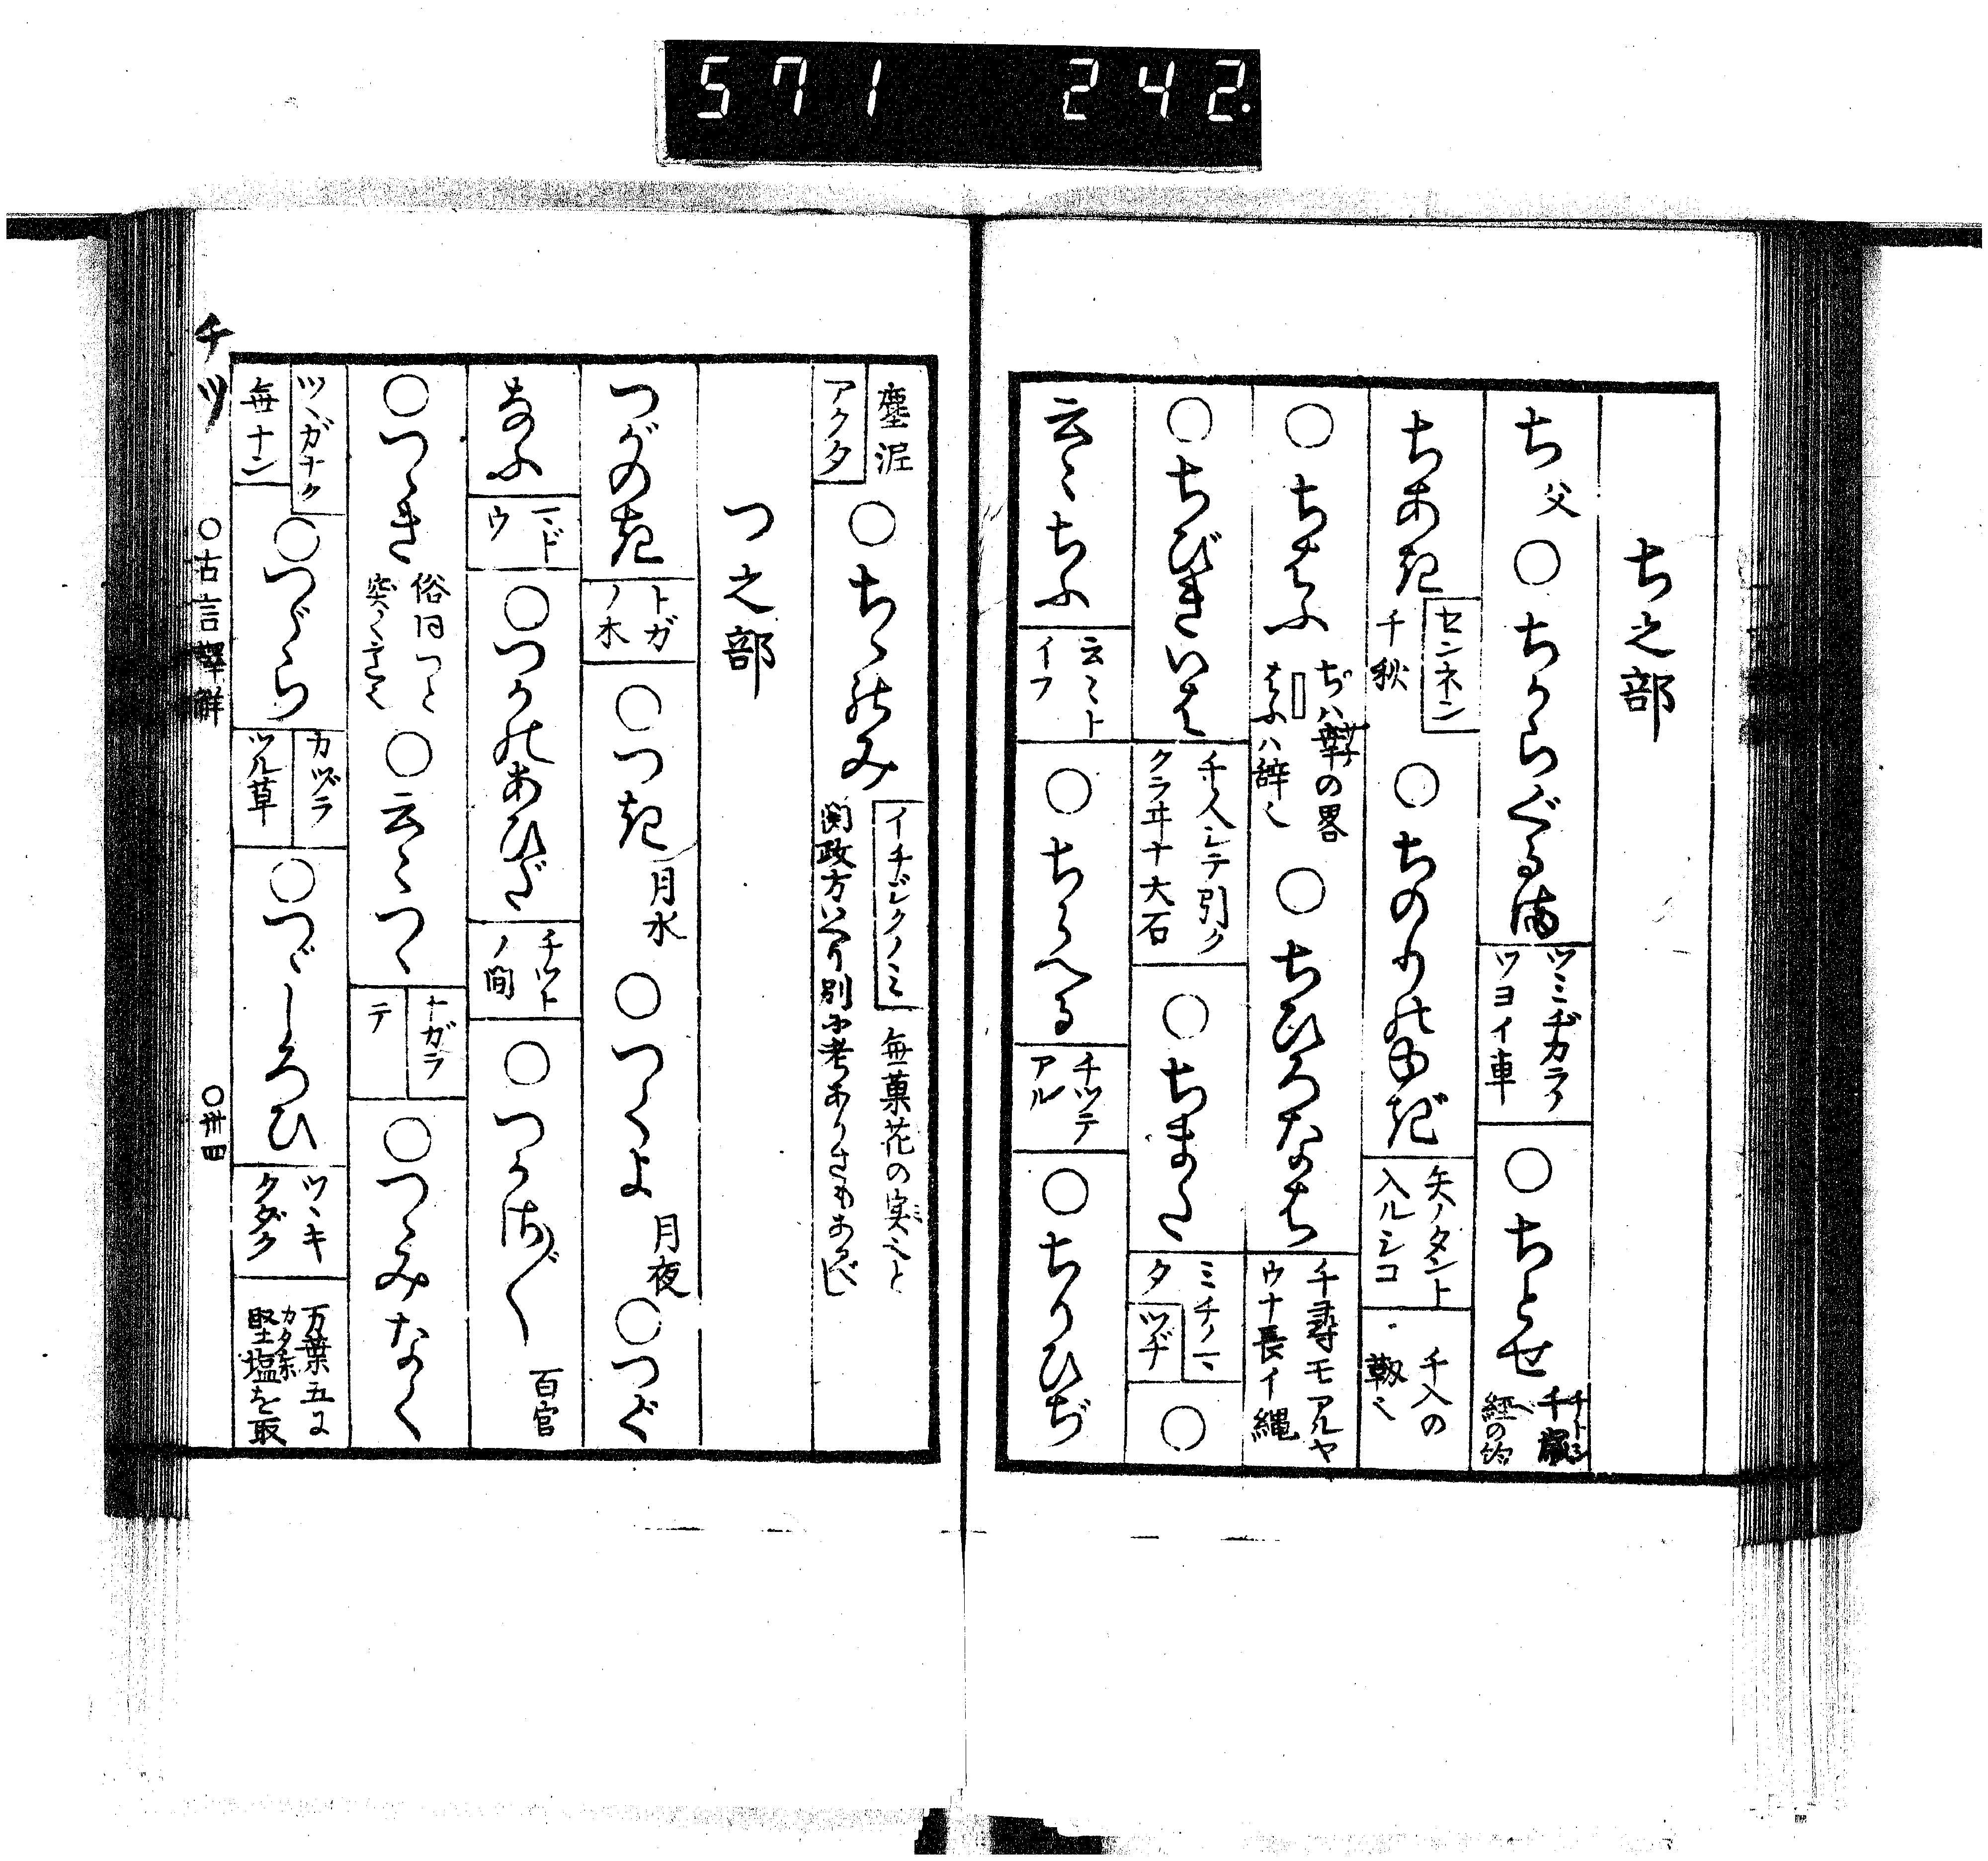 571 242.
ち之部
ち 父 ○ちからぐるま ツミヂカラノ ツヨイ車 ○ちとせ 千歳 チトシ 経の
ちあき センネン 千秋 ○ちのりのゆき 矢ノタント 入ルシコ 千入の 靱也
○ちはふ ちハ の畧 はふハ辞也 ○ちひろなは 千尋モアルヤ ウナ長イ縄
○ちびきいは 千人シテ引ク クラヰナ大石 ○ちまた ミチノマタ ツヂ ○
云〻ちふ 云〻ト イフ ○ちらへる チツテ アル ○ちりひぢ
塵泥 アクタ ○ちゝのみ イチジクノミ 無菓花の実也と 政方いへり別に考ありさもあるべし
つ之部
つがのき トガ ノ木 ○つき 月水 ○つくよ 月夜 ○つぐ
なふ マドウ ○つかのあひだ チツト ノ間 ○つかさ〴〵 百官
○つゝき 俗ニつと 突く ○云〻つゝ ナガラ テ ○つゝみなく
ツヽガナク 毎ナン ○つゞら カヅラ ツル草 ○つゞしろひ ツヽキ クダク 万葉五に 堅塩を取 カタシホ
チツ ○古言譯解 ○卅四